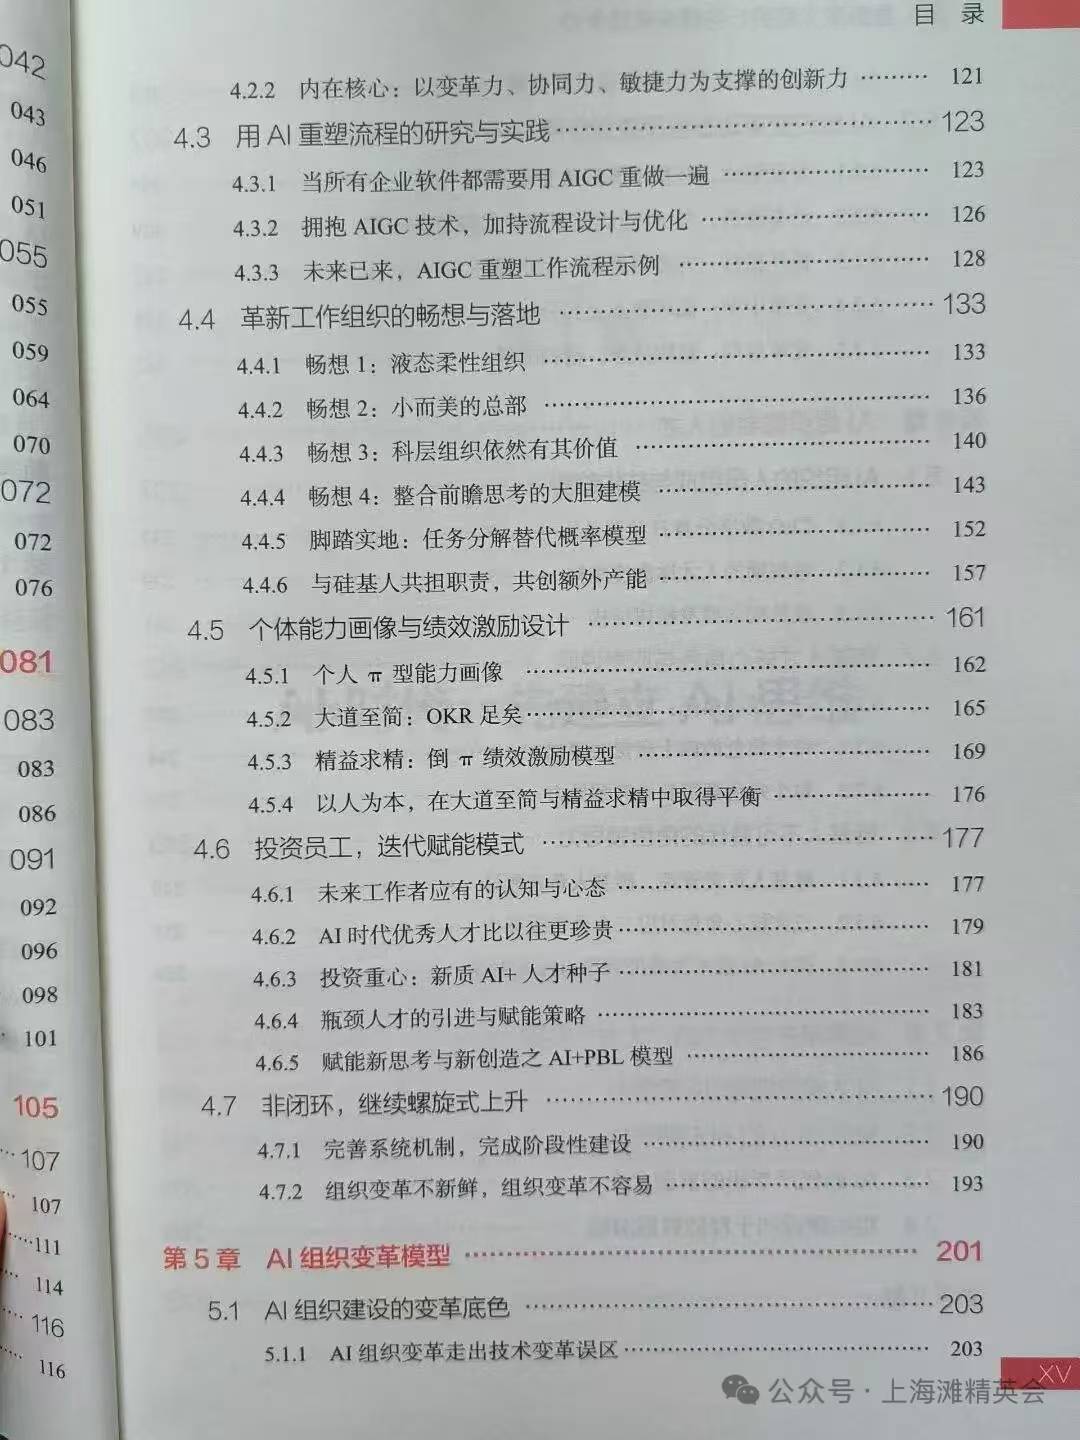 目 录
4.2.2 内在核心：以变革力、协同力、敏捷力为支撑的创新力 ……… 121
4.3 用 AI 重塑流程的研究与实践 ……… 123
4.3.1 当所有企业软件都需要用 AIGC 重做一遍 ……… 123
4.3.2 拥抱 AIGC 技术，加持流程设计与优化 ……… 126
4.3.3 未来已来，AIGC 重塑工作流程示例 ……… 128
4.4 革新工作组织的畅想与落地 ……… 133
4.4.1 畅想 1：液态柔性组织 ……… 133
4.4.2 畅想 2：小而美的总部 ……… 136
4.4.3 畅想 3：科层组织依然有其价值 ……… 140
4.4.4 畅想 4：整合前瞻思考的大胆建模 ……… 143
4.4.5 脚踏实地：任务分解替代概率模型 ……… 152
4.4.6 与硅基人共担职责，共创额外产能 ……… 157
4.5 个体能力画像与绩效激励设计 ……… 161
4.5.1 个人 π 型能力画像 ……… 162
4.5.2 大道至简：OKR 足矣 ……… 165
4.5.3 精益求精：倒 π 绩效激励模型 ……… 169
4.5.4 以人为本，在大道至简与精益求精中取得平衡 ……… 176
4.6 投资员工，迭代赋能模式 ……… 177
4.6.1 未来工作者应有的认知与心态 ……… 177
4.6.2 AI 时代优秀人才比以往更珍贵 ……… 179
4.6.3 投资重心：新质 AI+ 人才种子 ……… 181
4.6.4 瓶颈人才的引进与赋能策略 ……… 183
4.6.5 赋能新思考与新创造之 AI+PBL 模型 ……… 186
4.7 非闭环，继续螺旋式上升 ……… 190
4.7.1 完善系统机制，完成阶段性建设 ……… 190
4.7.2 组织变革不新鲜，组织变革不容易 ……… 193
第 5 章 AI 组织变革模型 ……… 201
5.1 AI 组织建设的变革底色 ……… 203
5.1.1 AI 组织变革走出技术变革误区 ……… 203
XV
公众号 · 上海滩精英会
042
043
046
051
055
055
059
064
070
072
072
076
081
083
083
086
091
092
096
098
101
105
107
107
111
114
116
116